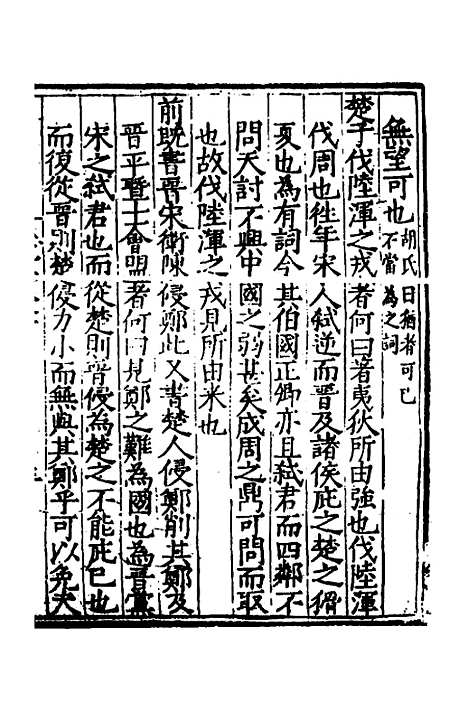 無望可也胡氏曰猶者可已
不當為之詞
楚子伐陸渾之戎者何曰著夷狄所由強也伐陸渾
伐周也徃年宋人弒逆而晉及諸侯庇之楚之猾
夏也為有詞今其伯國正卿亦且弒君而四鄰不
問天討不興中國之弱甚矣成周之鼎可問而取
也故伐陸渾之戎見所由來也
前既書晉宋衛陳侵鄭此又書楚人侵鄭削其鄭及
晉平暨士會盟者何曰見鄭之難為國也為晉黨
宋之弒君也而從楚則晉侵為楚之不能庇已也
而復從晉則楚侵力小而無與其鄭乎可以免大